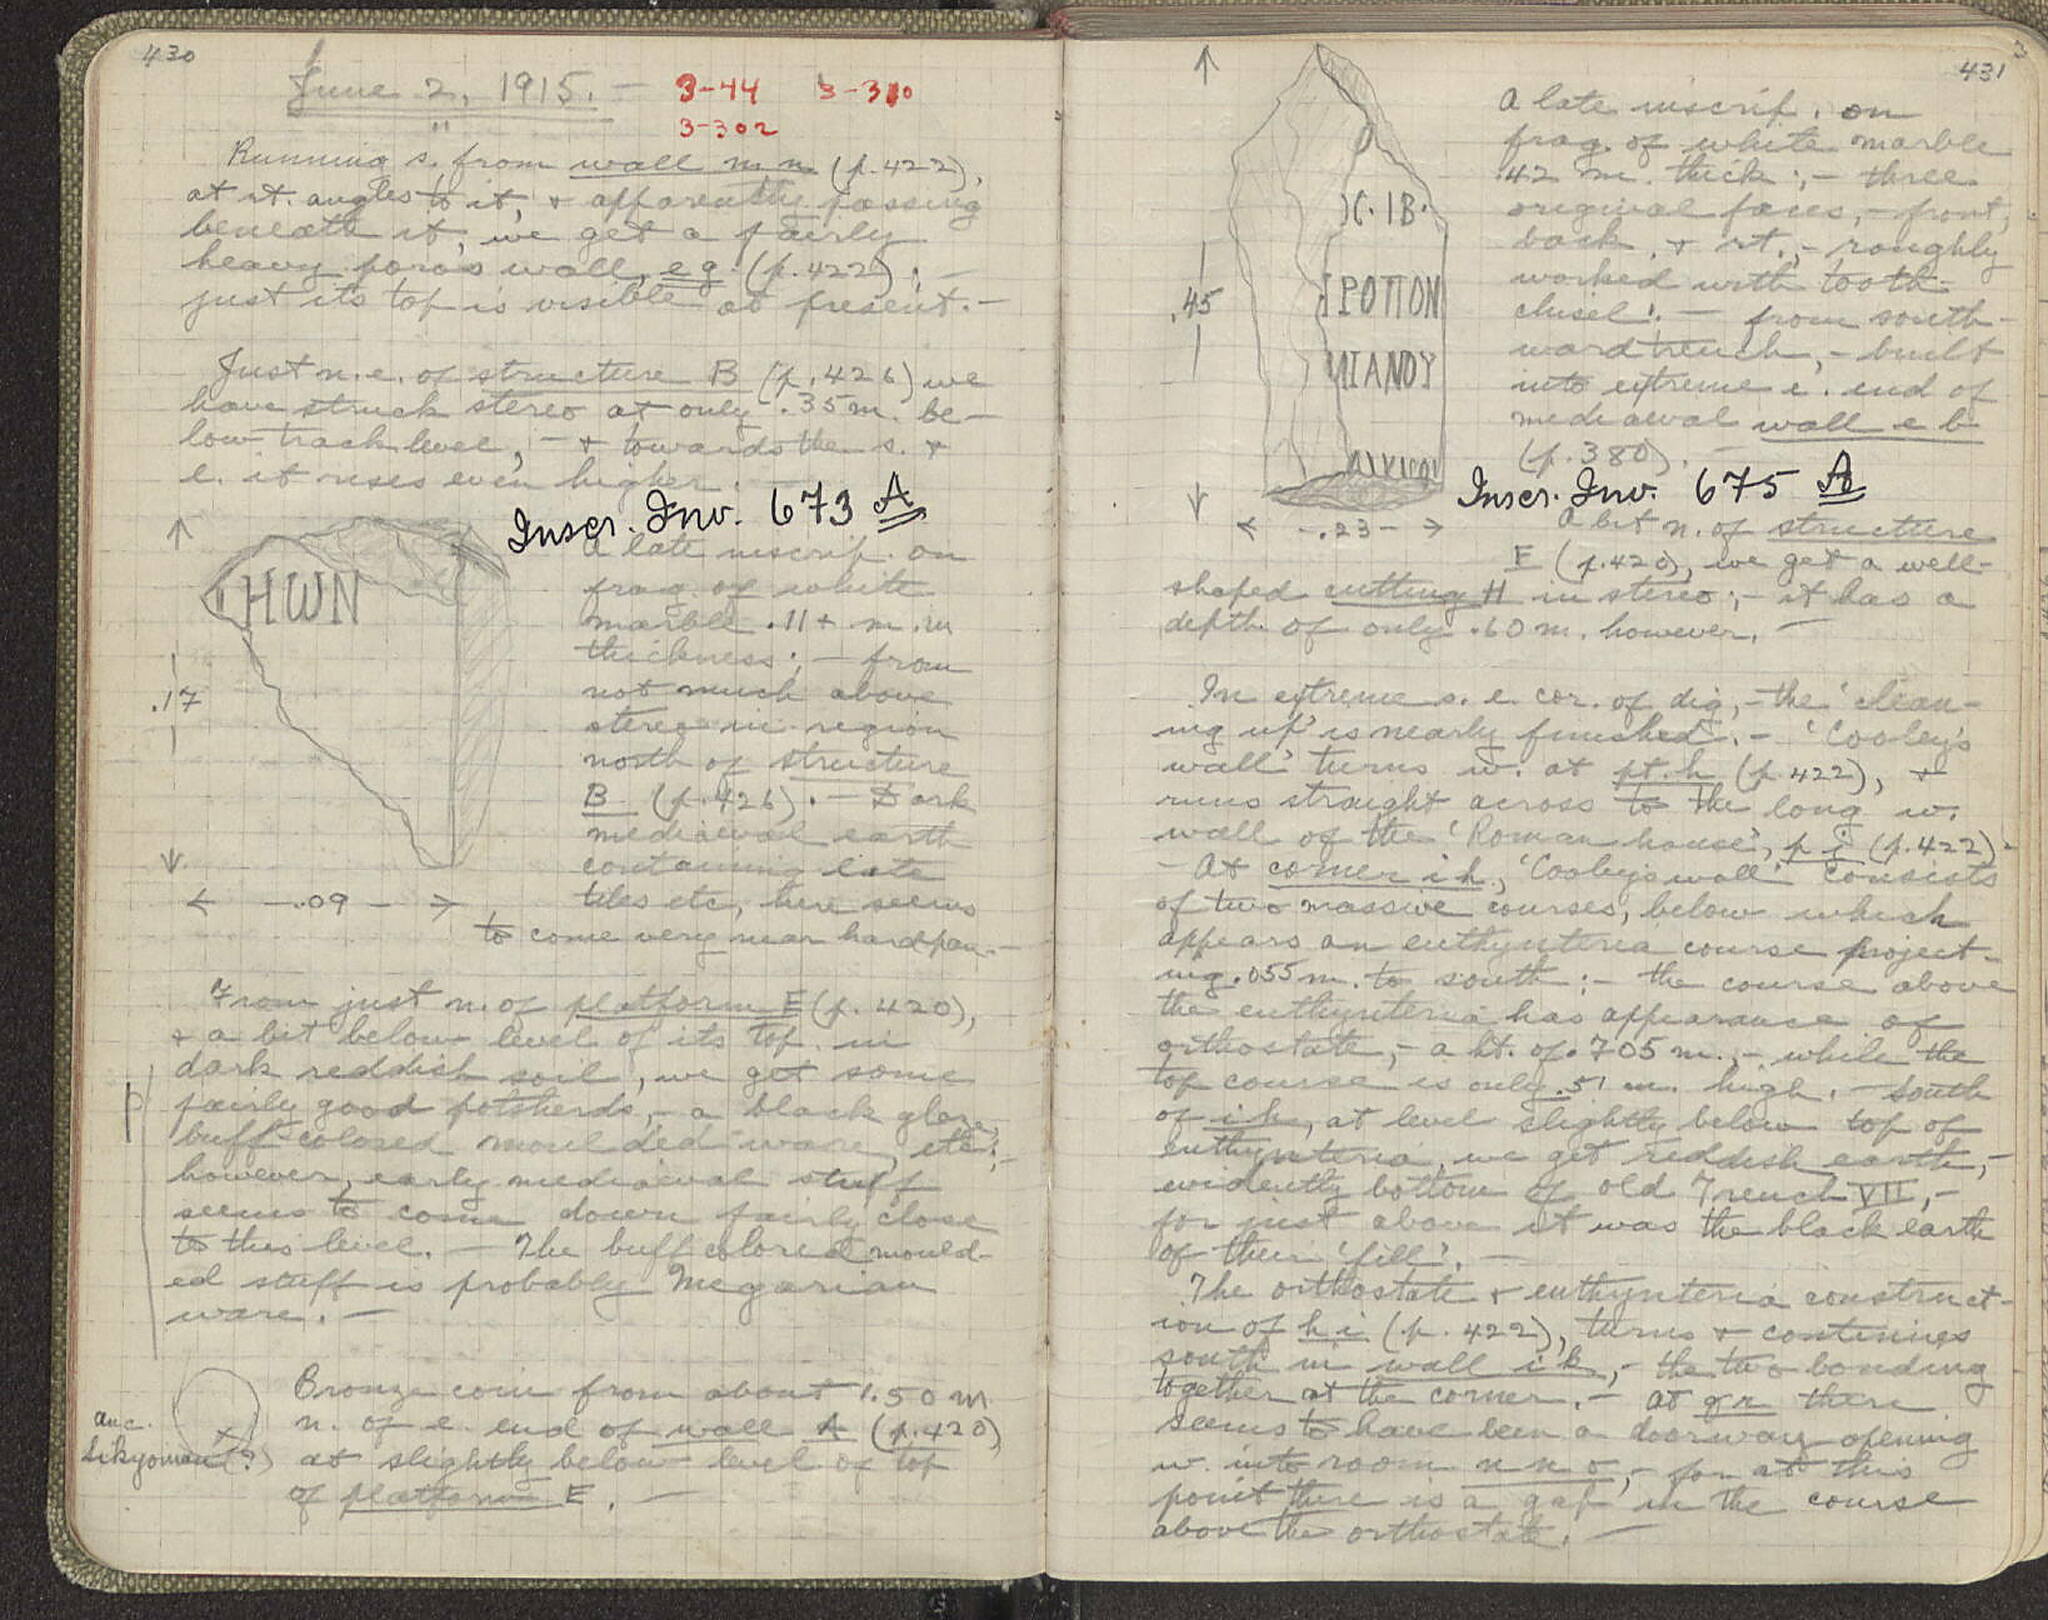 430
June 2, 1915. —
3-44 3-310
3-302
Running s. from wall m n (p. 422),
at rt. angles to it, + apparently passing
beneath it, we get a fairly
heavy poros wall, e g (p. 422), —
just its top is visible at present. —
Just n.e. of structure B (p. 426) we
have struck stereo at only .35 m. be-
low track level, — + towards the s. +
e. it rises even higher. —
Inscr. Inv. 673 A
HWN
.17
.09
A late inscrip. on
frag. of white
marble .11 + m. in
thickness; — from
not much above
stereo in region
north of structure
B (p. 426). — Dark
mediaeval earth
containing late
tiles etc, here seems
to come very near hardpan. —
From just n. of platform E (p. 420),
+ a bit below level of its top in
dark reddish soil, we get some
fairly good potsherds, — a black glaze,
buff-colored moulded ware, etc; —
however, early mediaeval stuff
seems to come down fairly close
to this level. — The buff colored mould-
ed stuff is probably Megarian
ware. —
anc.
Sikyonian (?)
Bronze coin from about 1.50 m
n. of e. end of wall A (p. 420)
at slightly below level of top
of platform E. —
431
3
.45
Ϲ.ΙΒ.
ΡΟΤΤΟΝ
ΙΑΝΟΥ
.23
A late inscrip. on
frag. of white marble
.42 m. thick; — three
original faces, — front,
back, + rt., — roughly
worked with tooth-
chisel; — from south-
ward trench, — built
into extreme e. end of
mediaeval wall e b
(p. 380). —
Inscr. Inv. 675 A
A bit n. of structure
E (p. 420), we get a well-
shaped cutting H in stereo; — it has a
depth of only .60 m. however. —
In extreme s. e. cor. of dig, — the 'clean-
ing up' is nearly finished. — 'Cooley's
wall' turns w. at pt. h (p. 422), +
runs straight across to the long w.
wall of the 'Roman house', p j (p. 422)
— At corner i h, 'Cooley's wall' consists
of two massive courses, below which
appears an euthynteria course project-
ing .055 m. to south; — the course above
the euthynteria has appearance of
orthostate, — a ht. of .705 m., — while the
top course is only .51 m. high. — South
of i h, at level slightly below top of
euthynteria, we get reddish earth, —
evidently bottom of old Trench VII, —
for just above it was the black earth
of their 'fill'. —
The orthostate + euthynteria construct-
ion of h i (p. 422), turns + continues
south in wall i k, — the two bonding
together at the corner. — At q r there
seems to have been a doorway opening
w. into room n n o, — for at this
point there is a gap in the course
above the orthostate. —